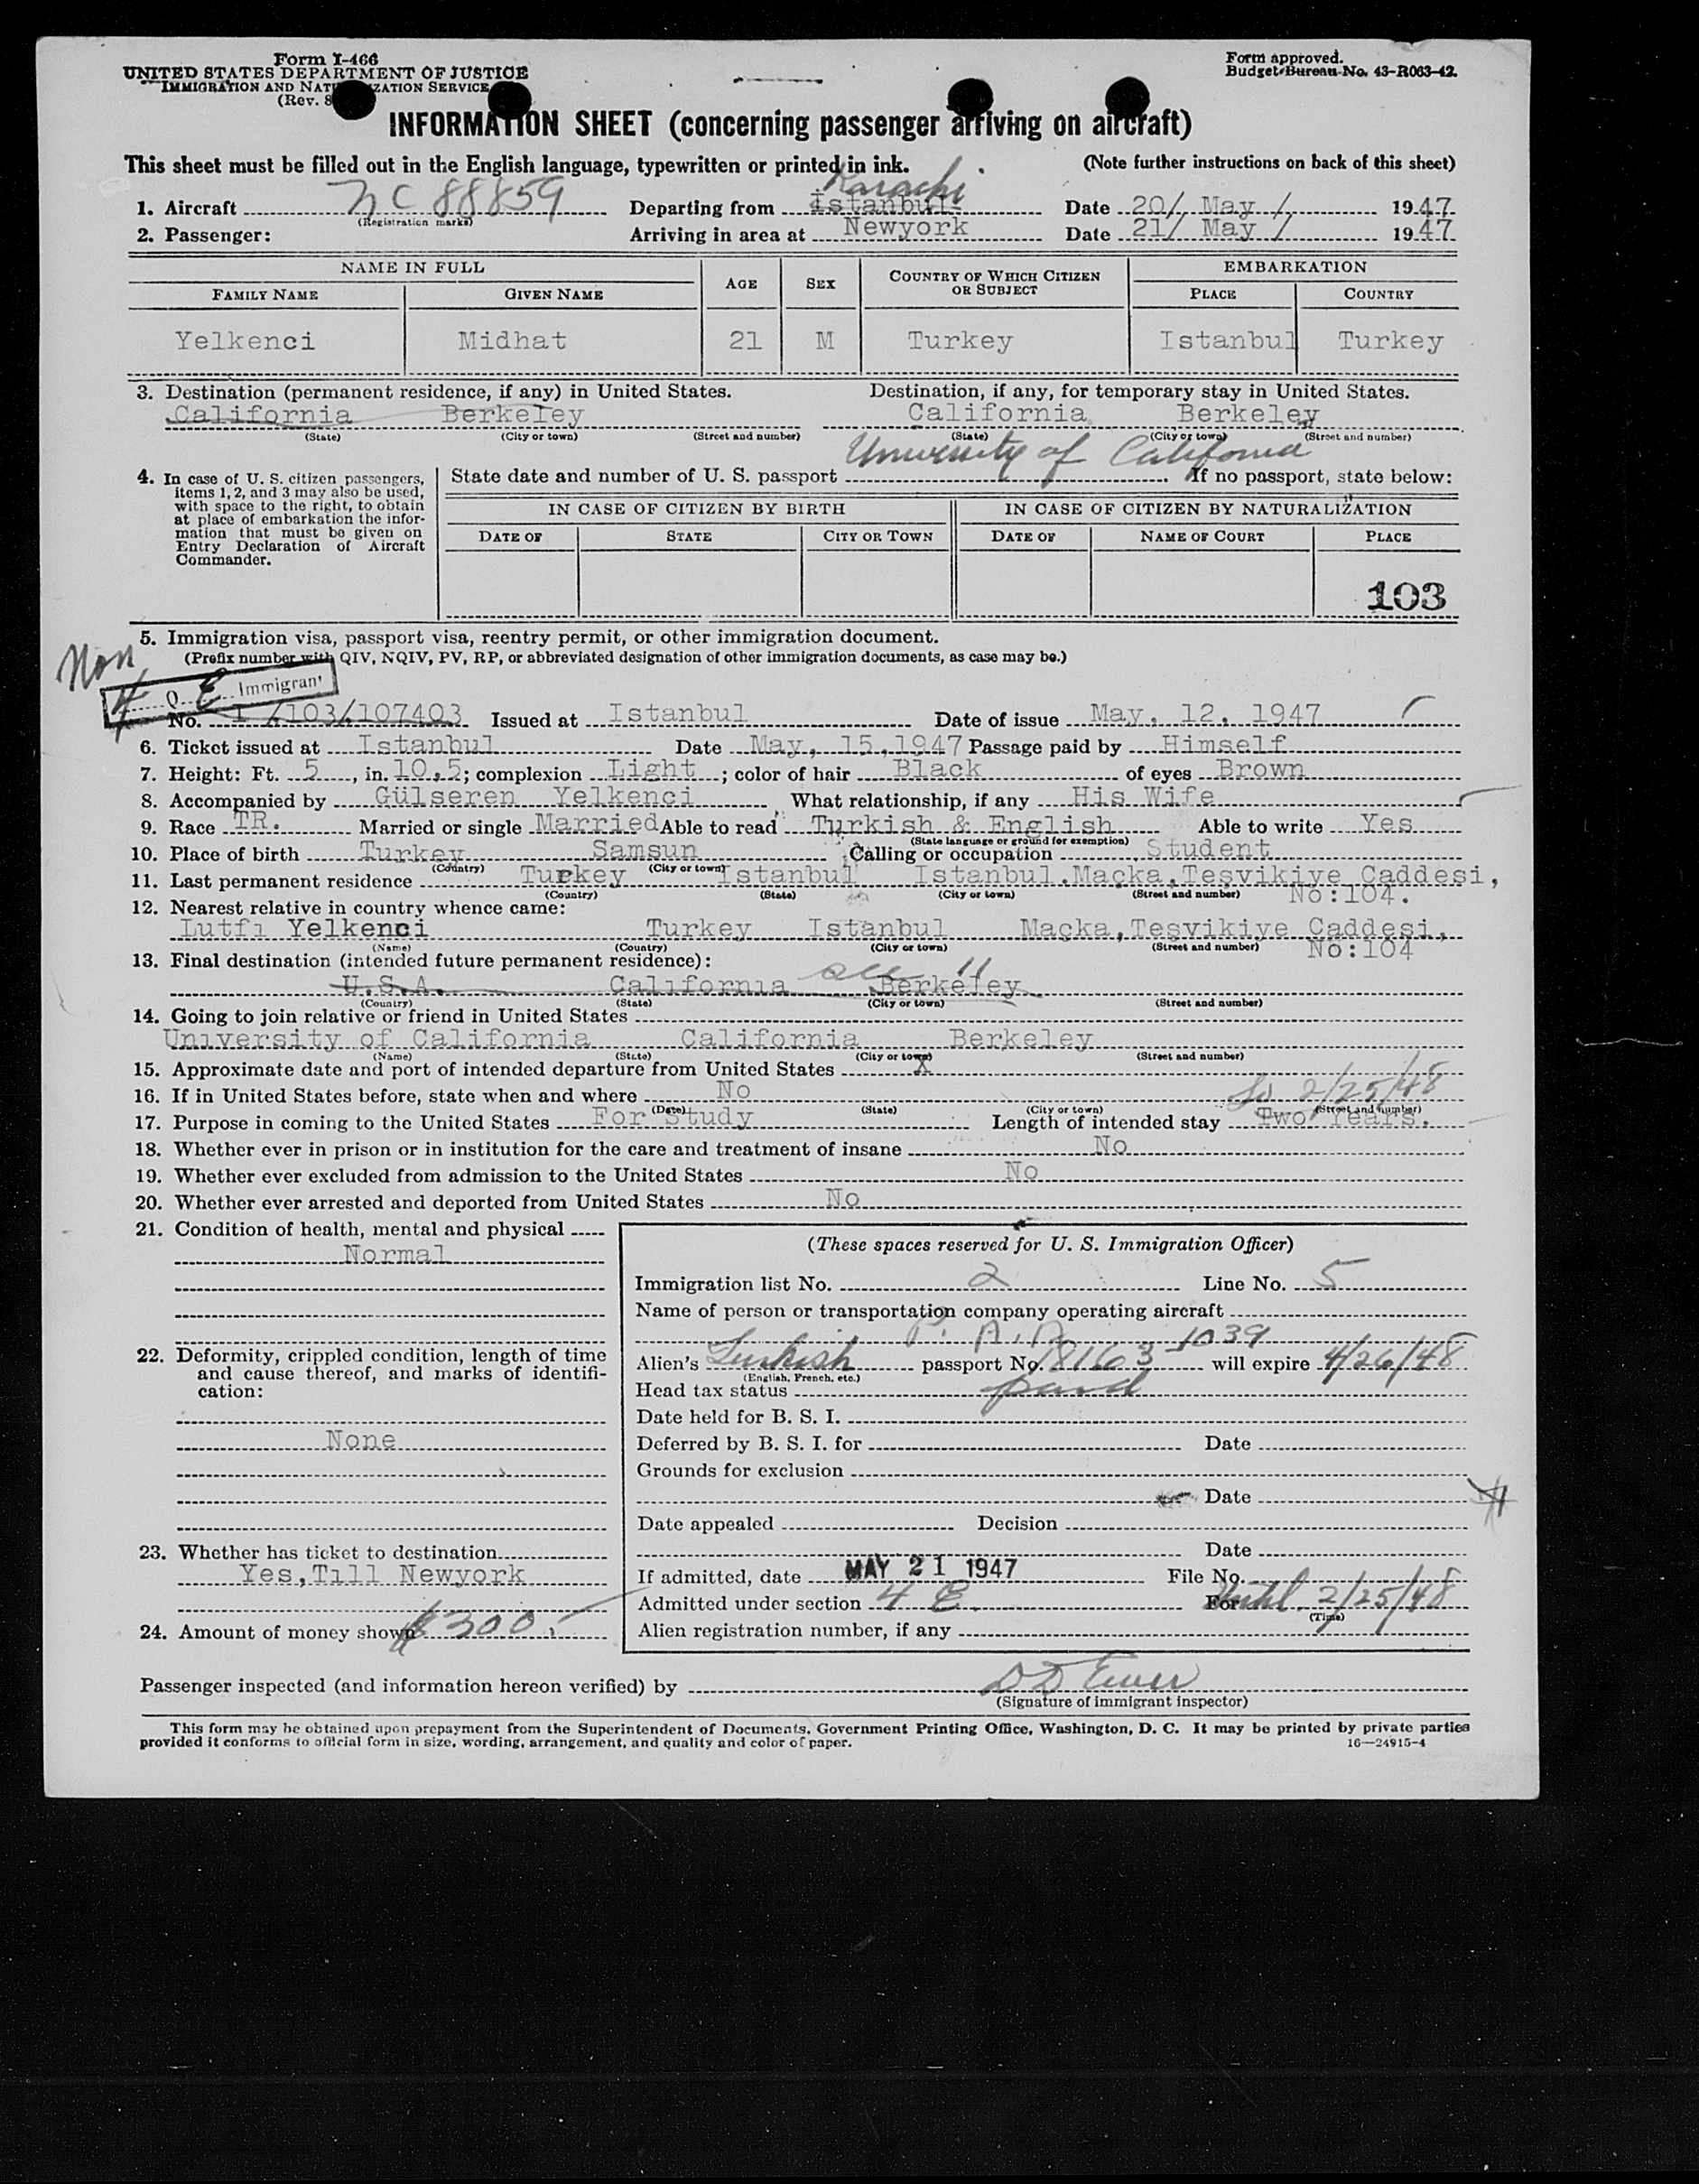 Form I-466
UNITED STATES DEPARTMENT OF JUSTICE
IMMIGRATION AND NATURALIZATION SERVICE
(Rev. 8
Form approved.
Budget Bureau No. 43-R063-42.
INFORMATION SHEET (concerning passenger arriving on aircraft)
This sheet must be filled out in the English language, typewritten or printed in ink. (Note further instructions on back of this sheet)
Karachi
1. Aircraft NC 88859 Departing from Istanbul Date 20/ May / 1947
(Registration marks)
2. Passenger: Arriving in area at Newyork Date 21/ May / 1947
NAME IN FULL AGE SEX COUNTRY OF WHICH CITIZEN OR SUBJECT EMBARKATION
FAMILY NAME GIVEN NAME PLACE COUNTRY
Yelkenci Midhat 21 M Turkey Istanbul Turkey
3. Destination (permanent residence, if any) in United States. Destination, if any, for temporary stay in United States.
California Berkeley California Berkeley
(State) (City or town) (Street and number) (State) (City or town) (Street and number)
University of California
4. In case of U. S. citizen passengers, items 1, 2, and 3 may also be used, with space to the right, to obtain at place of embarkation the information that must be given on Entry Declaration of Aircraft Commander.
State date and number of U. S. passport If no passport, state below:
IN CASE OF CITIZEN BY BIRTH IN CASE OF CITIZEN BY NATURALIZATION
DATE OF STATE CITY OR TOWN DATE OF NAME OF COURT PLACE
103
5. Immigration visa, passport visa, reentry permit, or other immigration document.
(Prefix number with QIV, NQIV, PV, RP, or abbreviated designation of other immigration documents, as case may be.)
Non
4 E Immigrant
No. 1 /103/107403 Issued at Istanbul Date of issue May, 12, 1947
6. Ticket issued at Istanbul Date May, 15,1947 Passage paid by Himself
7. Height: Ft. 5, in. 10,5; complexion Light; color of hair Black of eyes Brown
8. Accompanied by Gülseren Yelkenci What relationship, if any His Wife
9. Race TR. Married or single Married Able to read Turkish & English Able to write Yes
(State language or ground for exemption)
10. Place of birth Turkey Samsun Calling or occupation Student
(Country) (City or town)
11. Last permanent residence Turkey Istanbul Istanbul,Maçka,Teşvikiye Caddesi,
(Country) (State) (City or town) (Street and number) No:104.
12. Nearest relative in country whence came:
Lutfi Yelkenci Turkey Istanbul Maçka,Teşvikiye Caddesi,
(Name) (Country) (City or town) (Street and number) No:104
13. Final destination (intended future permanent residence):
see 11
U.S.A. California Berkeley
(Country) (State) (City or town) (Street and number)
14. Going to join relative or friend in United States
University of California California Berkeley
(Name) (State) (City or town) (Street and number)
15. Approximate date and port of intended departure from United States X
16. If in United States before, state when and where No
(Date) (State) (City or town) (Street and number)
2/25/48
17. Purpose in coming to the United States For Study Length of intended stay Two Years.
18. Whether ever in prison or in institution for the care and treatment of insane No
19. Whether ever excluded from admission to the United States No
20. Whether ever arrested and deported from United States No
21. Condition of health, mental and physical
Normal
22. Deformity, crippled condition, length of time and cause thereof, and marks of identification:
None
23. Whether has ticket to destination
Yes,Till Newyork
24. Amount of money shown $300
(These spaces reserved for U. S. Immigration Officer)
Immigration list No. 2 Line No. 5
Name of person or transportation company operating aircraft
P. A. A
Alien's Turkish passport No. 18163-1039 will expire 4/26/48
(English, French, etc.)
Head tax status paid
Date held for B. S. I.
Deferred by B. S. I. for Date
Grounds for exclusion
Date
Date appealed Decision
Date
If admitted, date MAY 21 1947 File No.
Admitted under section 4 E. For until 2/25/48
(Time)
Alien registration number, if any
Passenger inspected (and information hereon verified) by
(Signature of immigrant inspector)
This form may be obtained upon prepayment from the Superintendent of Documents, Government Printing Office, Washington, D. C. It may be printed by private parties
provided it conforms to official form in size, wording, arrangement, and quality and color of paper. 16—24915-4